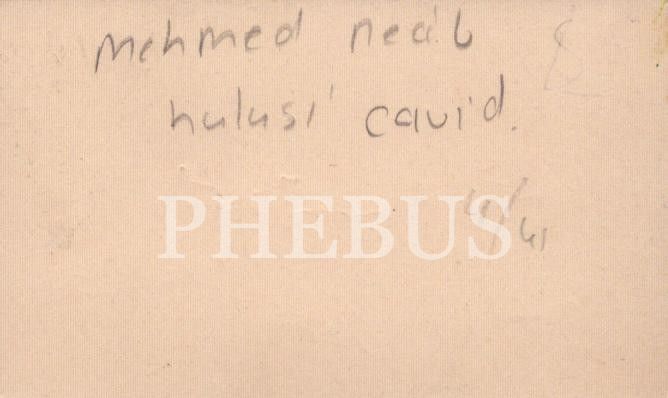 Mehmed necib
hulusi cavid.
PHEBUS